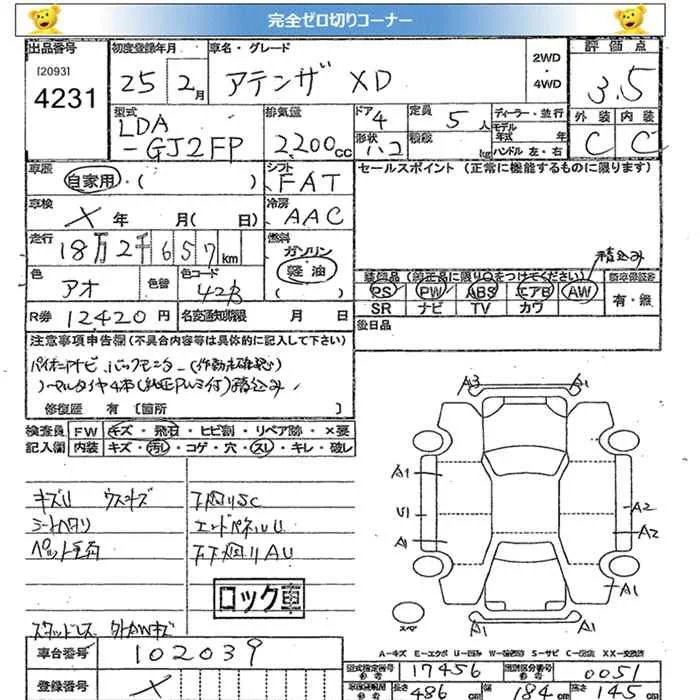 完全ゼロ切りコーナー
出品番号 初度登録年月 車名・グレード 2WD・4WD 評価点
[2093]
4231 25 2月 アテンザ XD 3.5
型式 排気量 ドア 4 定員 5人 ディーラー・並行 外装 内装
LDA 形状 ハコ 積載 kg モデル年式 年 C C
-GJ2FP 2,200cc ハンドル 左・右
車歴 自家用・( ) シフト FAT セールスポイント (正常に機能するものに限ります)
車検 X 年 月( 日) 冷房 AAC
走行 18万2千657km 燃料 ガソリン 軽油 ( )
積込み
色 アオ 色替 色コード 42B
装備品(純正品に限り○をつけてください) 新車保証書
PS PW ABS エアB AW 有・無
SR ナビ TV カワ
R券 12420円 名変通知期限 月 日 後日品
注意事項申告欄(不具合内容等は具体的に記入して下さい)
パイオニアナビ、バックモニター(作動未確認)
ノーマルタイヤ4本(純正アルミ付)積込み
修復歴 有 [箇所 ]
検査員 FW キズ・飛石・ヒビ割・リペア跡・×要
記入欄 内装 キズ・汚レ・コゲ・穴・スレ・キレ・破レ
A3 A1
A1
U1 A2
A1 A2
A1
A1 A1
スペア
キズU ウスキズ 下回りSC
シートヘタリ エンドパネルU
ペット毛有 下回りAU
ロック車
スタッドレス 外AWキズ
A-キズ E-エクボ U-凹み W-補修跡 S-サビ C-腐食 XX-交換済
車台番号 102039
型式指定番号 17456 類別区分番号 0051
登録番号 X
長さ 486cm 幅 184cm 高さ 145cm